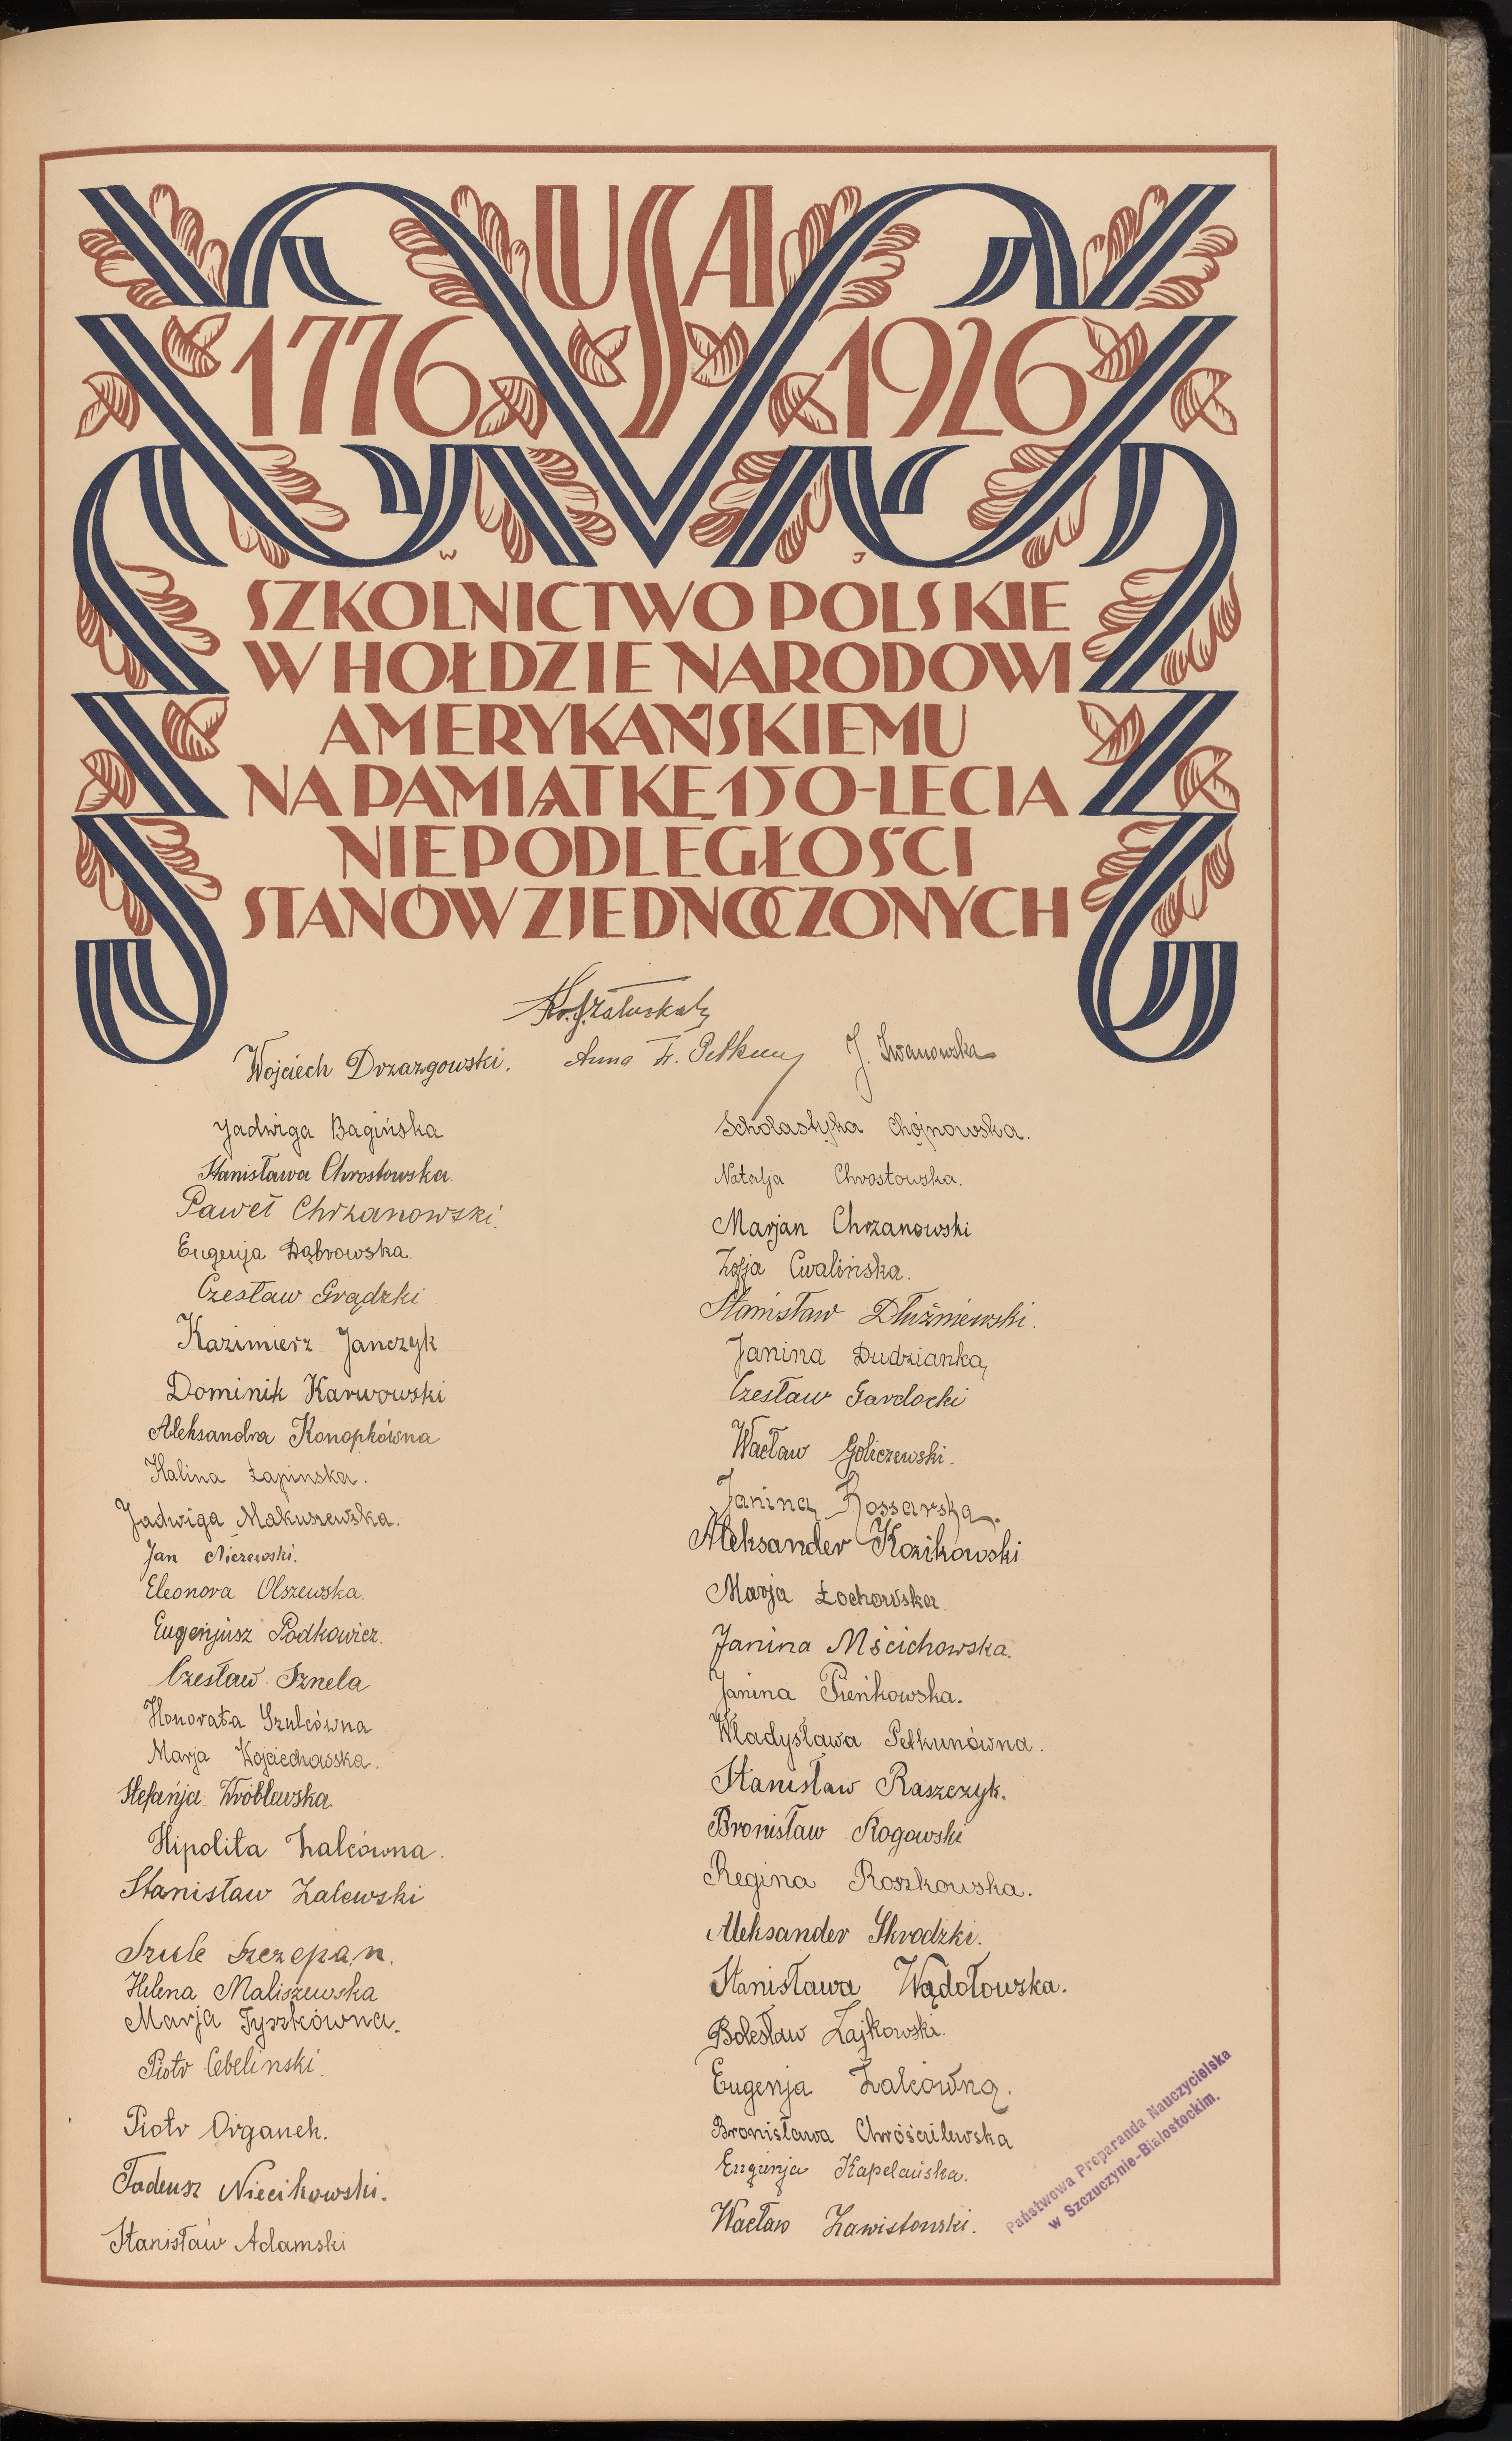 USA
1776 1926
W J
SZKOLNICTWO POLSKIE
W HOŁDZIE NARODOWI
AMERYKAŃSKIEMU
NA PAMIĄTKĘ 150-LECIA
NIEPODLEGŁOŚCI
STANÓW ZJEDNOCZONYCH
Wojciech Drzazgowski. Anna J. Iwanowska
Jadwiga Bagińska
Stanisława Chrostowska.
Paweł Chrzanowski.
Eugenja Dąbrowska.
Czesław Grądzki
Kazimierz Janczyk
Dominik Karwowski
Aleksandra Konopkówna
Halina Łapinska.
Jadwiga Makuszewska.
Jan Niczewski.
Eleonora Olszewska.
Eugenjusz Podkowicz.
Czesław Sznela
Honorata Szulcówna
Marja Wojciechowska.
Stefanja Wróblewska.
Hipolita Zalcówna.
Stanisław Zalewski
Szulc Szczepan.
Helena Maliszewska
Marja Tyszkówna.
Piotr Cebelinski.
Piotr Organek.
Tadeusz Niecikowski.
Stanisław Adamski
Scholastyka Chojnowska.
Natalja Chrostowska.
Marjan Chrzanowski
Zofja Cwalińska.
Stanisław Dłużniewski.
Janina Dudzianka
Czesław Gardocki
Wacław Goliczewski.
Janina Kossarska.
Aleksander Kozikowski
Marja Łochowska.
Janina Mścichowska.
Janina Pieńkowska.
Władysława Petkunówna.
Stanisław Raszczyk.
Bronisław Rogowski
Regina Roszkowska.
Aleksander Skrodzki.
Stanisława Wądołowska.
Bolesław Zajkowski.
Eugenja Zalcówna.
Bronisława Chróścilewska
Eugenja Kapelańska.
Wacław Zawistowski.
Państwowa Preparanda Nauczycielska
w Szczuczynie-Białostockim.